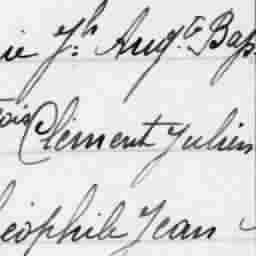 ie Jh. Augte Bap
tois Clément Julien
héophile Jean